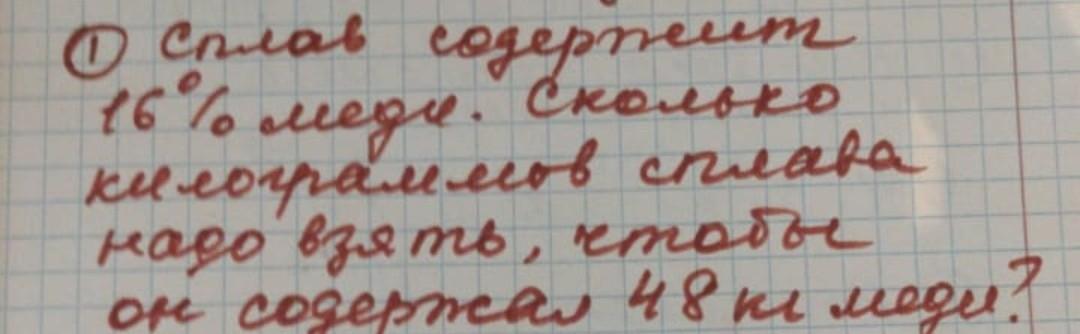 ① Сплав содержит
16% меди. Сколько
килограммов сплава
надо взять, чтобы
он содержал 48 кг меди?